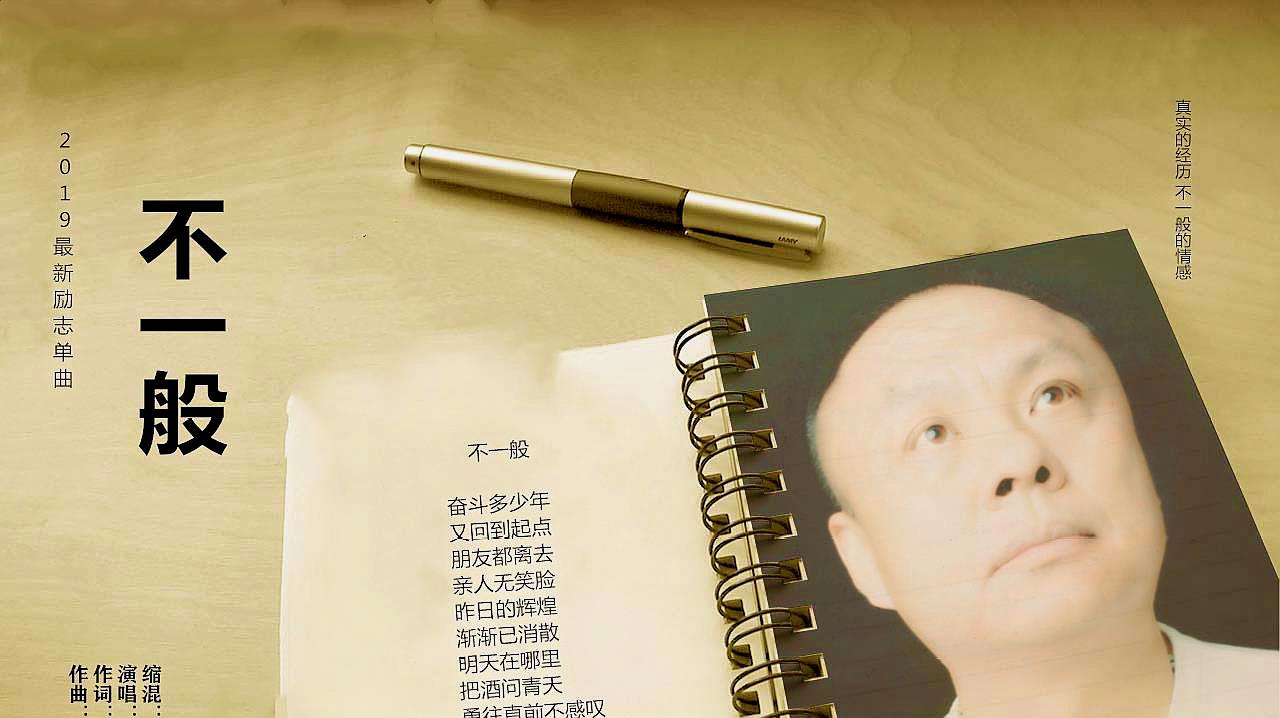 2019最新励志单曲
不一般
真实的经历 不一般的情感
LAMY
不一般
奋斗多少年
又回到起点
朋友都离去
亲人无笑脸
昨日的辉煌
渐渐已消散
明天在哪里
把酒问青天
勇往直前不感叹
缩混：
演唱：
作词：
作曲：